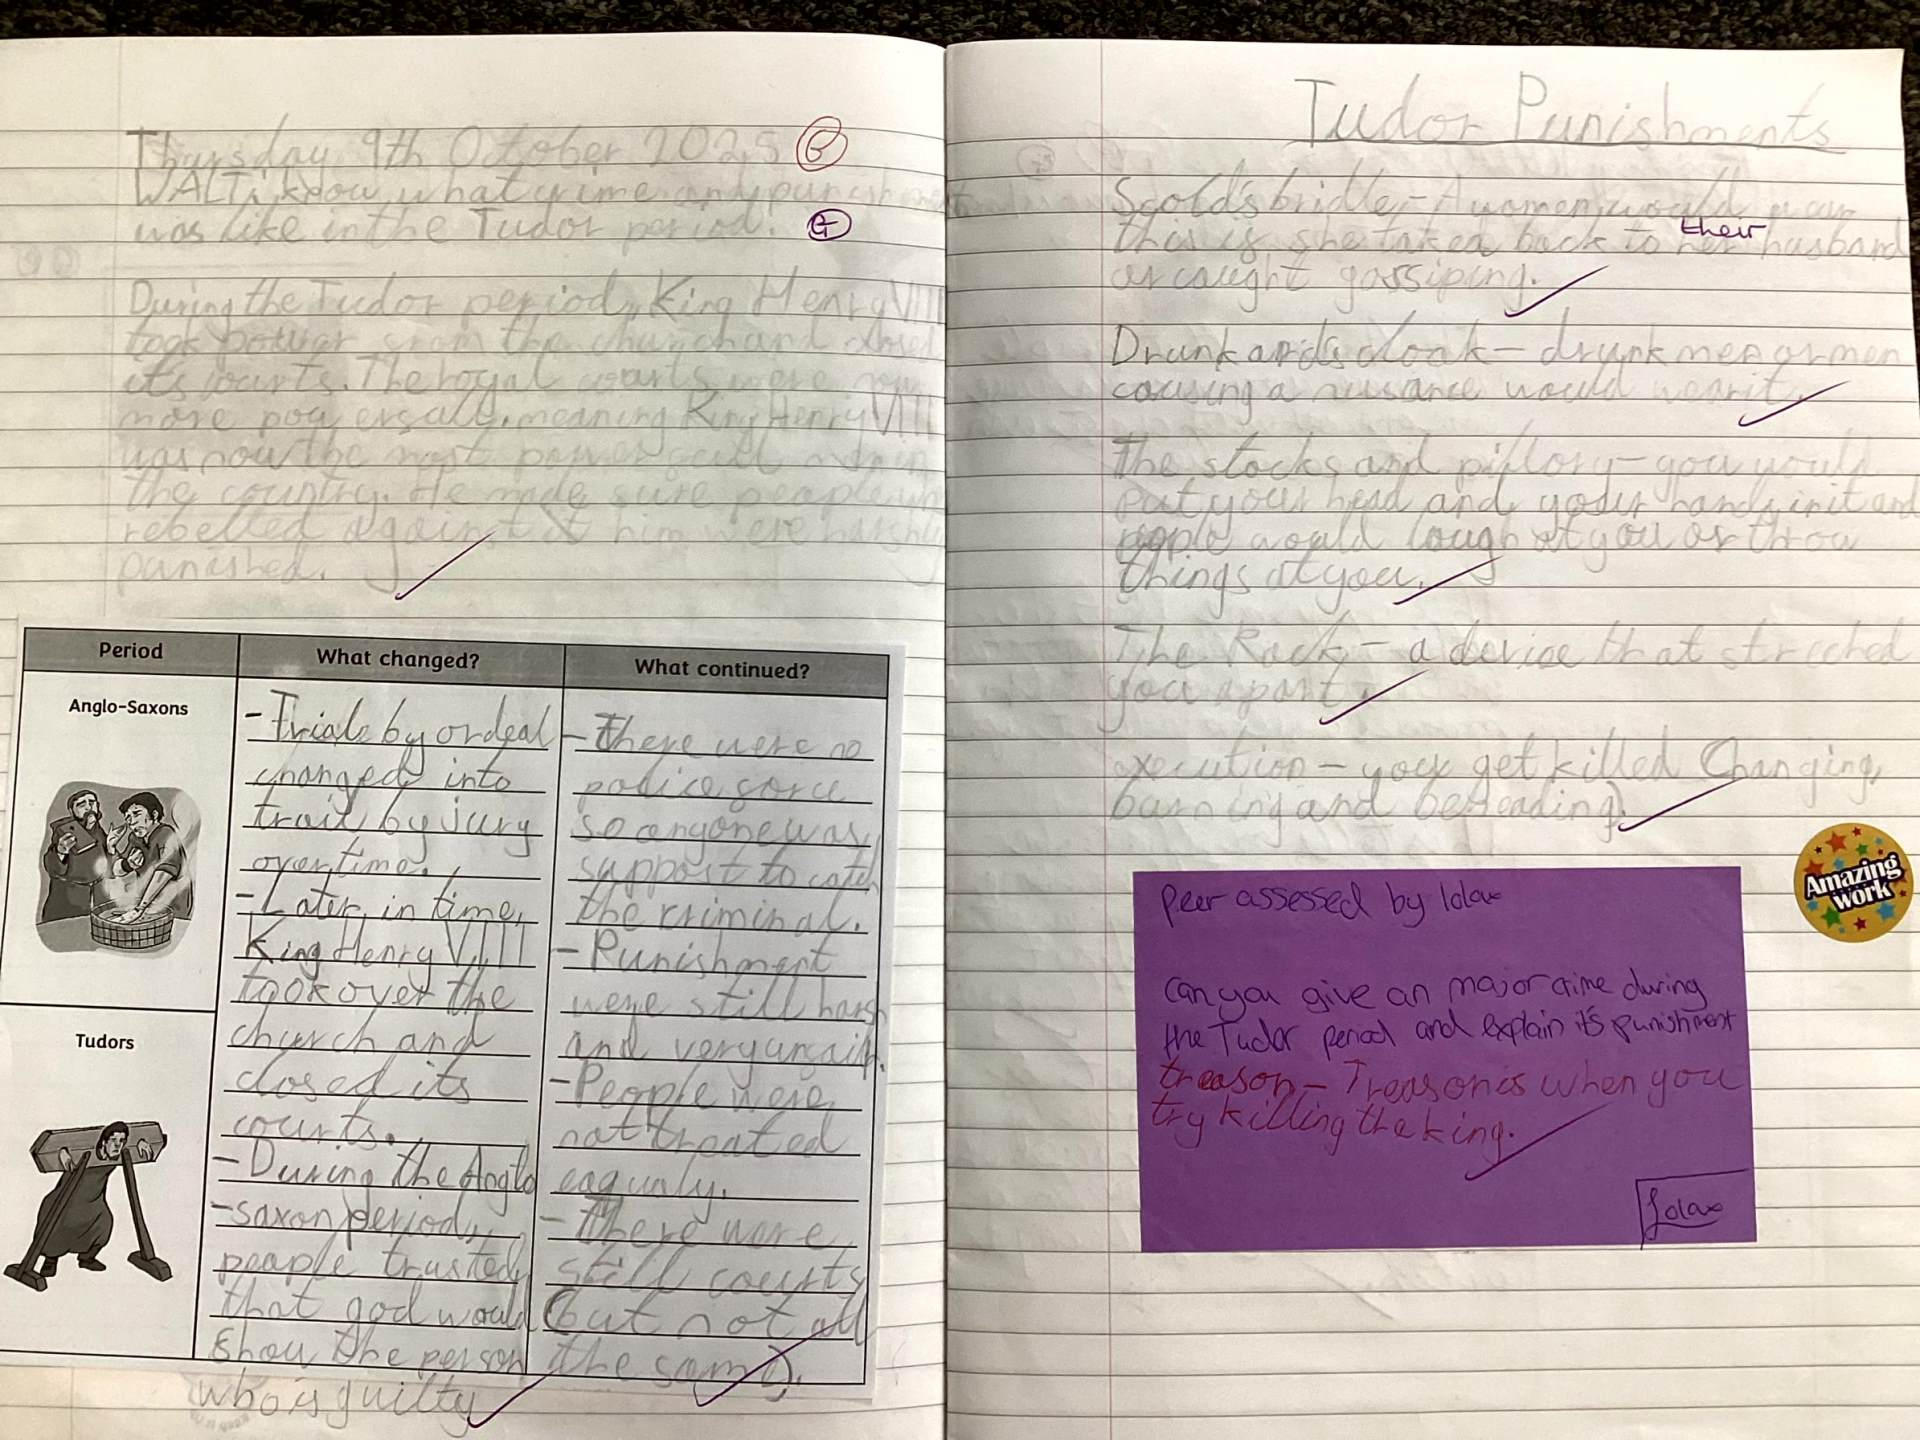 Thursday 9th October 2025 G
WALT: know what crime and punishment
was like in the Tudor period. G
During the Tudor period, King Henry VIII
took power from the church and closed
it's courts. The royal courts were now
more powersall, meaning King Henry VIII
was now the most powersall man in
the country. He made sure people who
rebelled against him were harshly
punished.
Period
What changed?
What continued?
Anglo-Saxons
Tudors
-Trials by ordeal
changed into
trail by jury
over time.
-Later in time,
King Henry VIII
took over the
church and
closed its
courts.
-During the Anglo
-saxon period,
people trusted
that god would
show the person
who is guilty
-There were no
police force
so anyone was
suppost to catch
the kriminal.
-Punishment
were still harsh
and very unfair.
-People were
not treated
eaqualy.
-There were
still courts
(but not all
the same).
Tudor Punishments
Scold's bridle - A women would wear
this if she talked back to their husband
or caught gossiping.
Drunkard's cloak - drunk men or men
causing a nuisance would wear it.
The stocks and pillory - you would
put your head and your hands in it and
people would laugh at you or throw
things at you.
The Rack - a device that streched
you apart.
execution - you get killed (hanging,
burning and beheading).
Amazing
work
peer assessed by lola
can you give an major crime during
the Tudor period and explain it's punishment
treason - Treason is when you
try killing the king.
Lola